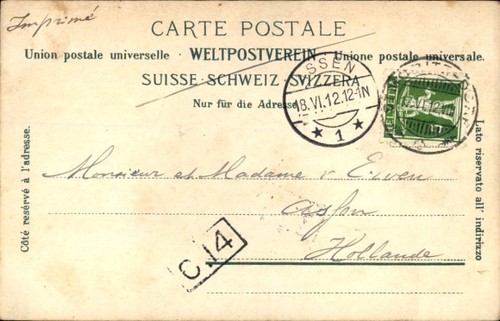 Imprimé
CARTE POSTALE
Union postale universelle · WELTPOSTVEREIN · Unione postale universale.
SUISSE · SCHWEIZ · SVIZZERA
Nur für die Adresse
ASSEN
18.VI.12.12-1N
★ 1 ★
HELVETIA
Côté resérvé à l'adresse.
Lato riservato all' indirizzo
Monsieur et Madame v Ewen
Assen
Hollande
C.14